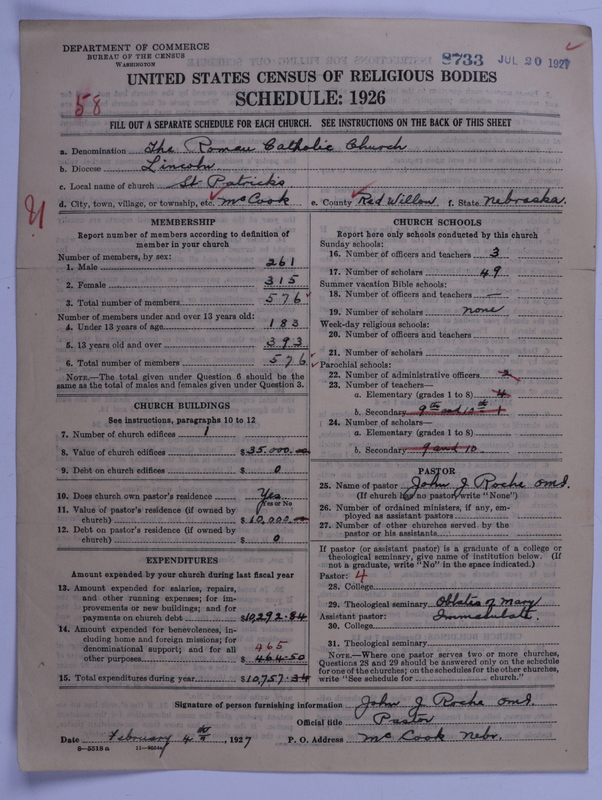 DEPARTMENT OF COMMERCE
BUREAU OF THE CENSUS
WASHINGTON
8733 JUL 20 1927
UNITED STATES CENSUS OF RELIGIOUS BODIES
58
SCHEDULE: 1926
FILL OUT A SEPARATE SCHEDULE FOR EACH CHURCH. SEE INSTRUCTIONS ON THE BACK OF THIS SHEET
a. Denomination The Roman Catholic Church
b. Diocese Lincoln
c. Local name of church St Patrick's
d. City, town, village, or township, etc. McCook e. County Red Willow f. State Nebraska.
MEMBERSHIP
Report number of members according to definition of
member in your church
Number of members, by sex:
1. Male 261
2. Female 315
3. Total number of members 576
Number of members under and over 13 years old:
4. Under 13 years of age 183
5. 13 years old and over 393
6. Total number of members 576
NOTE.—The total given under Question 6 should be the
same as the total of males and females given under Question 3.
CHURCH BUILDINGS
See instructions, paragraphs 10 to 12
7. Number of church edifices 1
8. Value of church edifices $35.000.00
9. Debt on church edifices $ 0
10. Does church own pastor's residence Yes
Yes or No
11. Value of pastor's residence (if owned by
church) $10,000.00
12. Debt on pastor's residence (if owned by
church) $ 0
EXPENDITURES
Amount expended by your church during last fiscal year
13. Amount expended for salaries, repairs,
and other running expenses; for im-
provements or new buildings; and for
payments on church debt $10,292.84
14. Amount expended for benevolences, in-
cluding home and foreign missions; for
denominational support; and for all 465
other purposes $ 464.50
15. Total expenditures during year $10,757.34
CHURCH SCHOOLS
Report here only schools conducted by this church
Sunday schools:
16. Number of officers and teachers 3
17. Number of scholars 49
Summer vacation Bible schools:
18. Number of officers and teachers —
19. Number of scholars none
Week-day religious schools:
20. Number of officers and teachers
21. Number of scholars
Parochial schools:
22. Number of administrative officers
23. Number of teachers—
a. Elementary (grades 1 to 8) 4
b. Secondary 9th and 10th 1
24. Number of scholars—
a. Elementary (grades 1 to 8)
b. Secondary 9 and 10
PASTOR
25. Name of pastor John J Roche OMI.
(If church has no pastor, write "None")
26. Number of ordained ministers, if any, em-
ployed as assistant pastors
27. Number of other churches served by the
pastor or his assistants
If pastor (or assistant pastor) is a graduate of a college or
theological seminary, give name of institution below. (If
not a graduate, write "No" in the space indicated.)
Pastor: 4
28. College
29. Theological seminary Oblates of Mary
Assistant pastor: Immaculate.
30. College
31. Theological seminary
NOTE.—Where one pastor serves two or more churches,
Questions 28 and 29 should be answered only on the schedule
for one of the churches; on the schedules for the other churches,
write "See schedule for church."
Signature of person furnishing information John J Roche OMI.
Official title Pastor
Date February 4th, 1927 P. O. Address McCook Nebr.
8—5518a